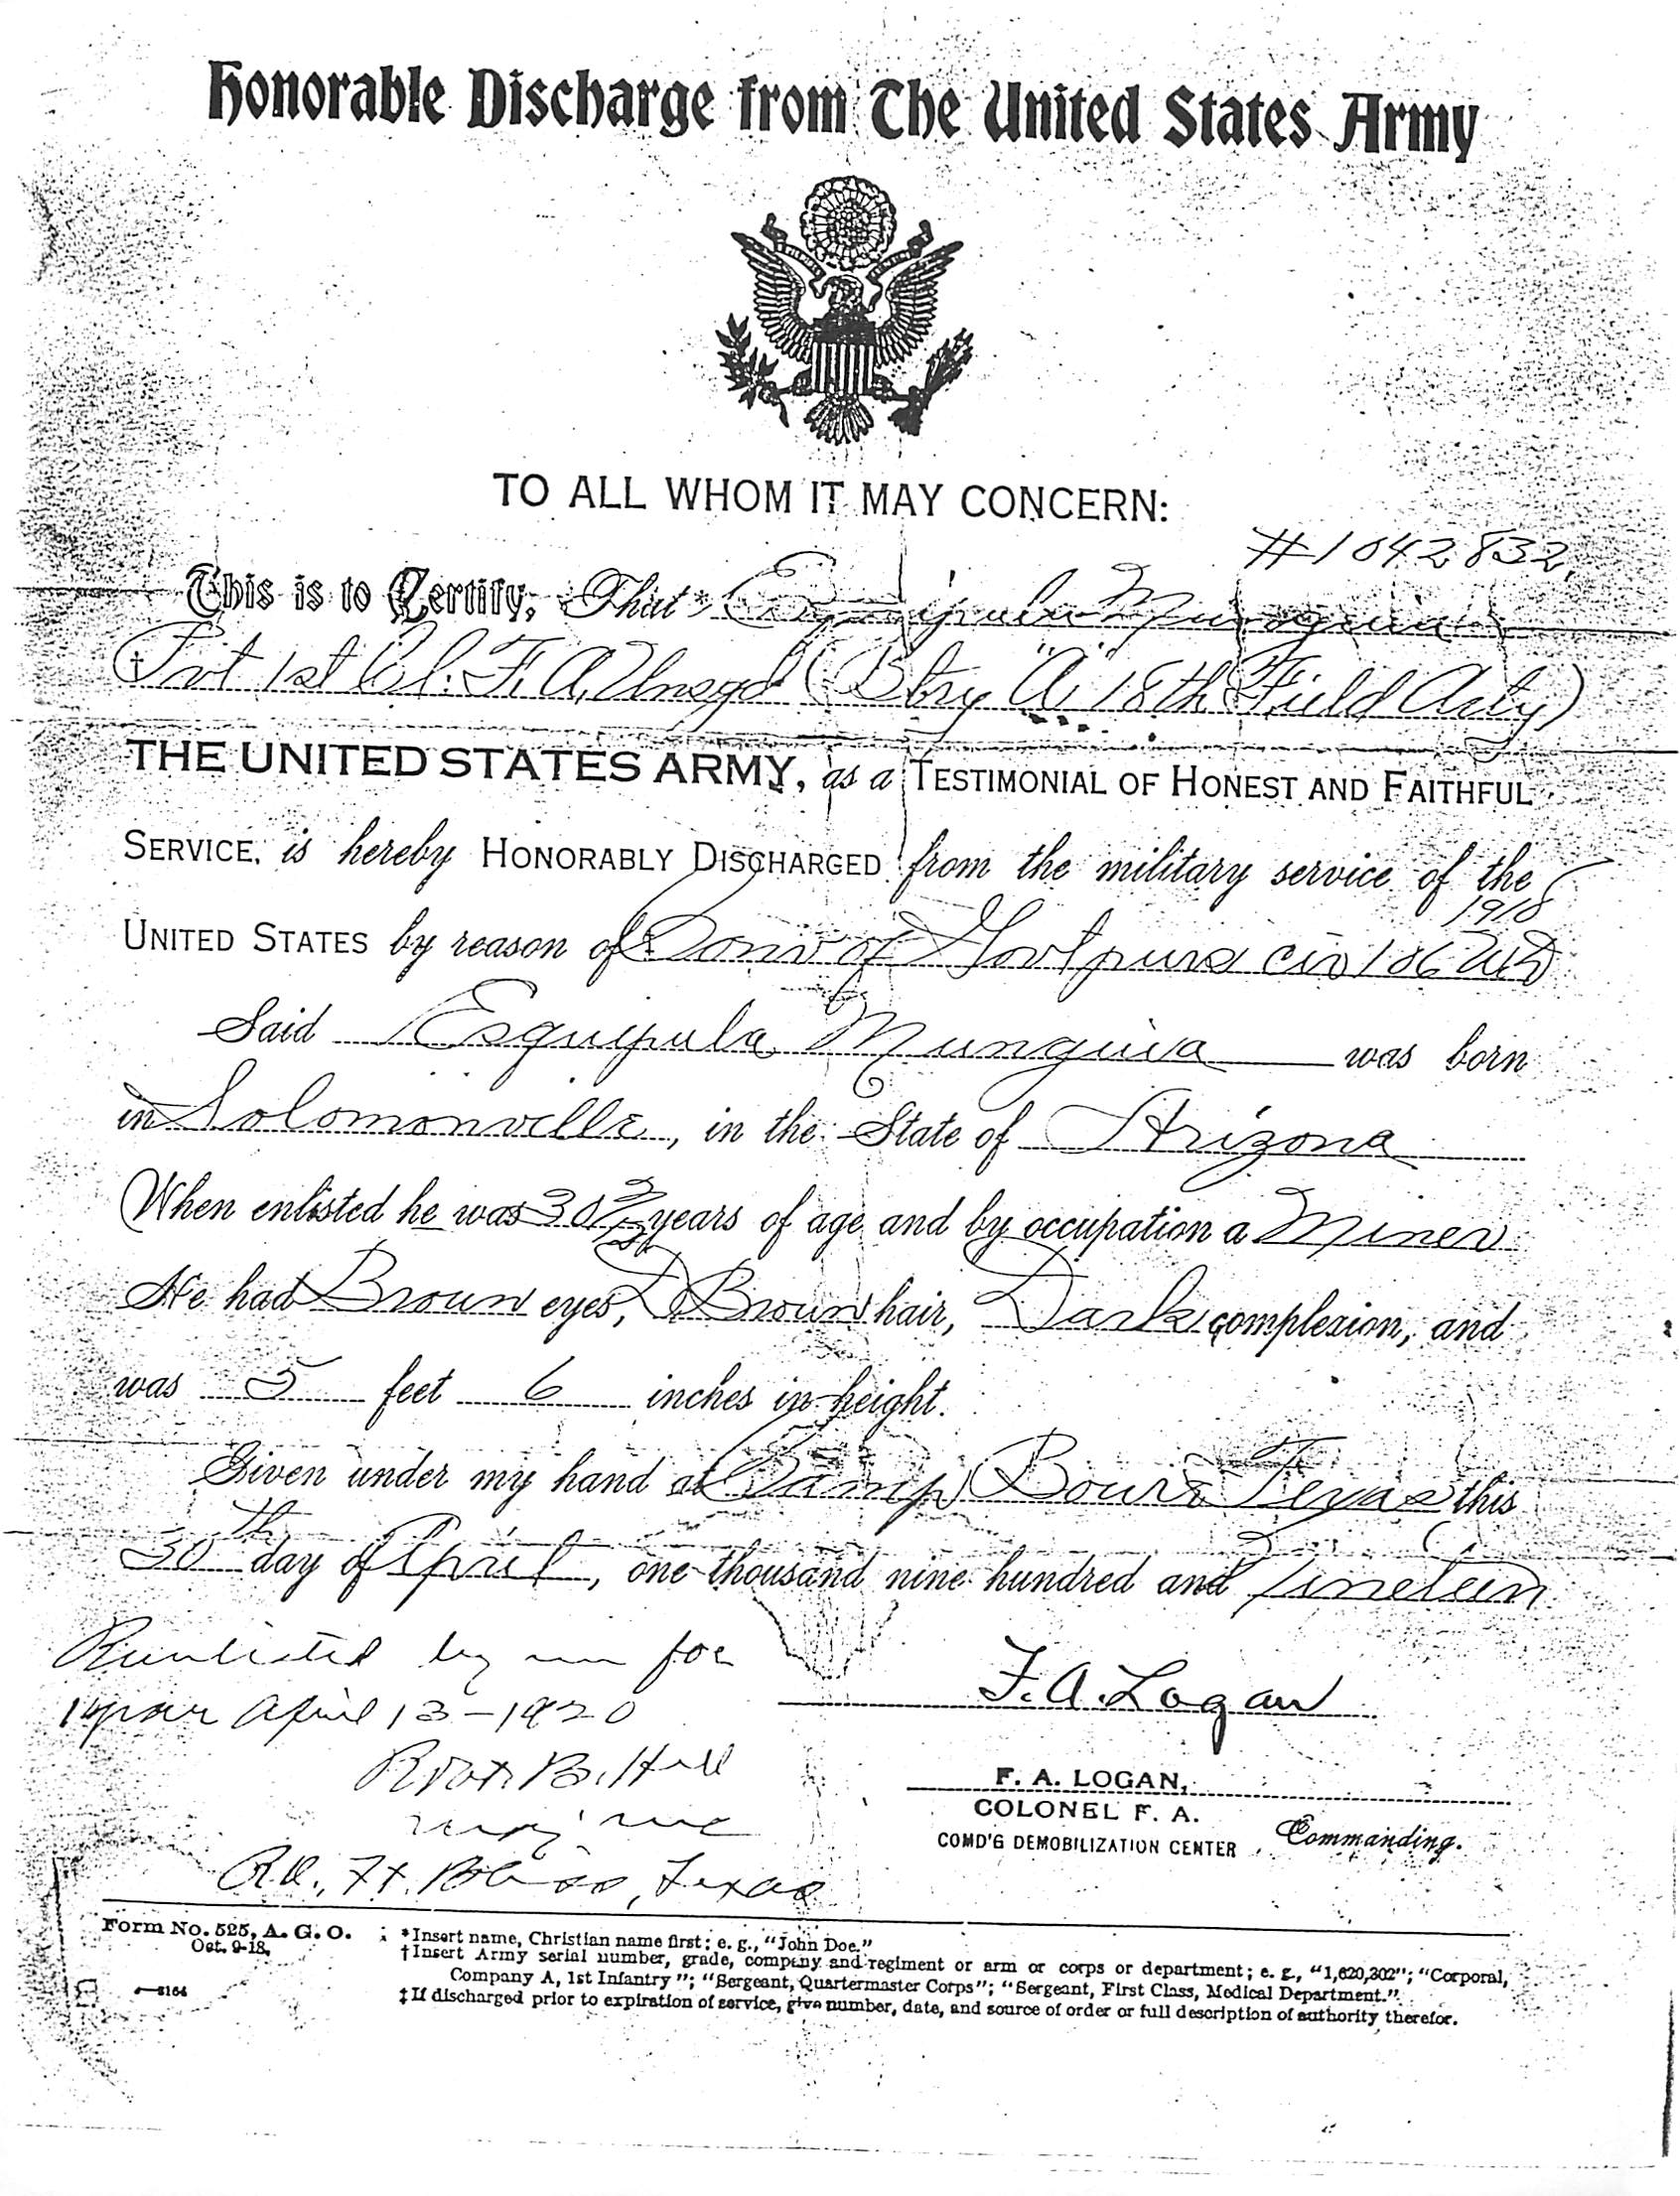 Honorable Discharge from The United States Army
TO ALL WHOM IT MAY CONCERN:
#1042832
This is to Certify, That* Esquipula Munguia
Pvt 1st Cl. F. A. Unasgd (Btry "A" 18th Field Arty)
THE UNITED STATES ARMY, as a TESTIMONIAL OF HONEST AND FAITHFUL
SERVICE, is hereby HONORABLY DISCHARGED from the military service of the
1918
UNITED STATES by reason of‡ Conv of Govt purs cir 106 WD
Said Esquipula Munguia was born
in Solomonville, in the State of Arizona
When enlisted he was 30 years of age and by occupation a Miner
He had Brown eyes, D Brown hair, Dark complexion, and
was 5 feet 6 inches in height.
Given under my hand at Camp Bowie Texas this
30th day of April, one thousand nine hundred and nineteen
Reenlisted by me for
1 year April 13-1920
Robt. B. Hill
F. A. Logan
F. A. LOGAN,
COLONEL F. A.
COMD'G DEMOBILIZATION CENTER Commanding.
R.O., Ft. Bliss, Texas
Form No. 525, A. G. O.
Oct. 9-18.
3-3164
*Insert name, Christian name first; e. g., "John Doe."
†Insert Army serial number, grade, company and regiment or arm or corps or department; e. g., "1,620,302"; "Corporal,
Company A, 1st Infantry"; "Sergeant, Quartermaster Corps"; "Sergeant, First Class, Medical Department."
‡If discharged prior to expiration of service, give number, date, and source of order or full description of authority therefor.